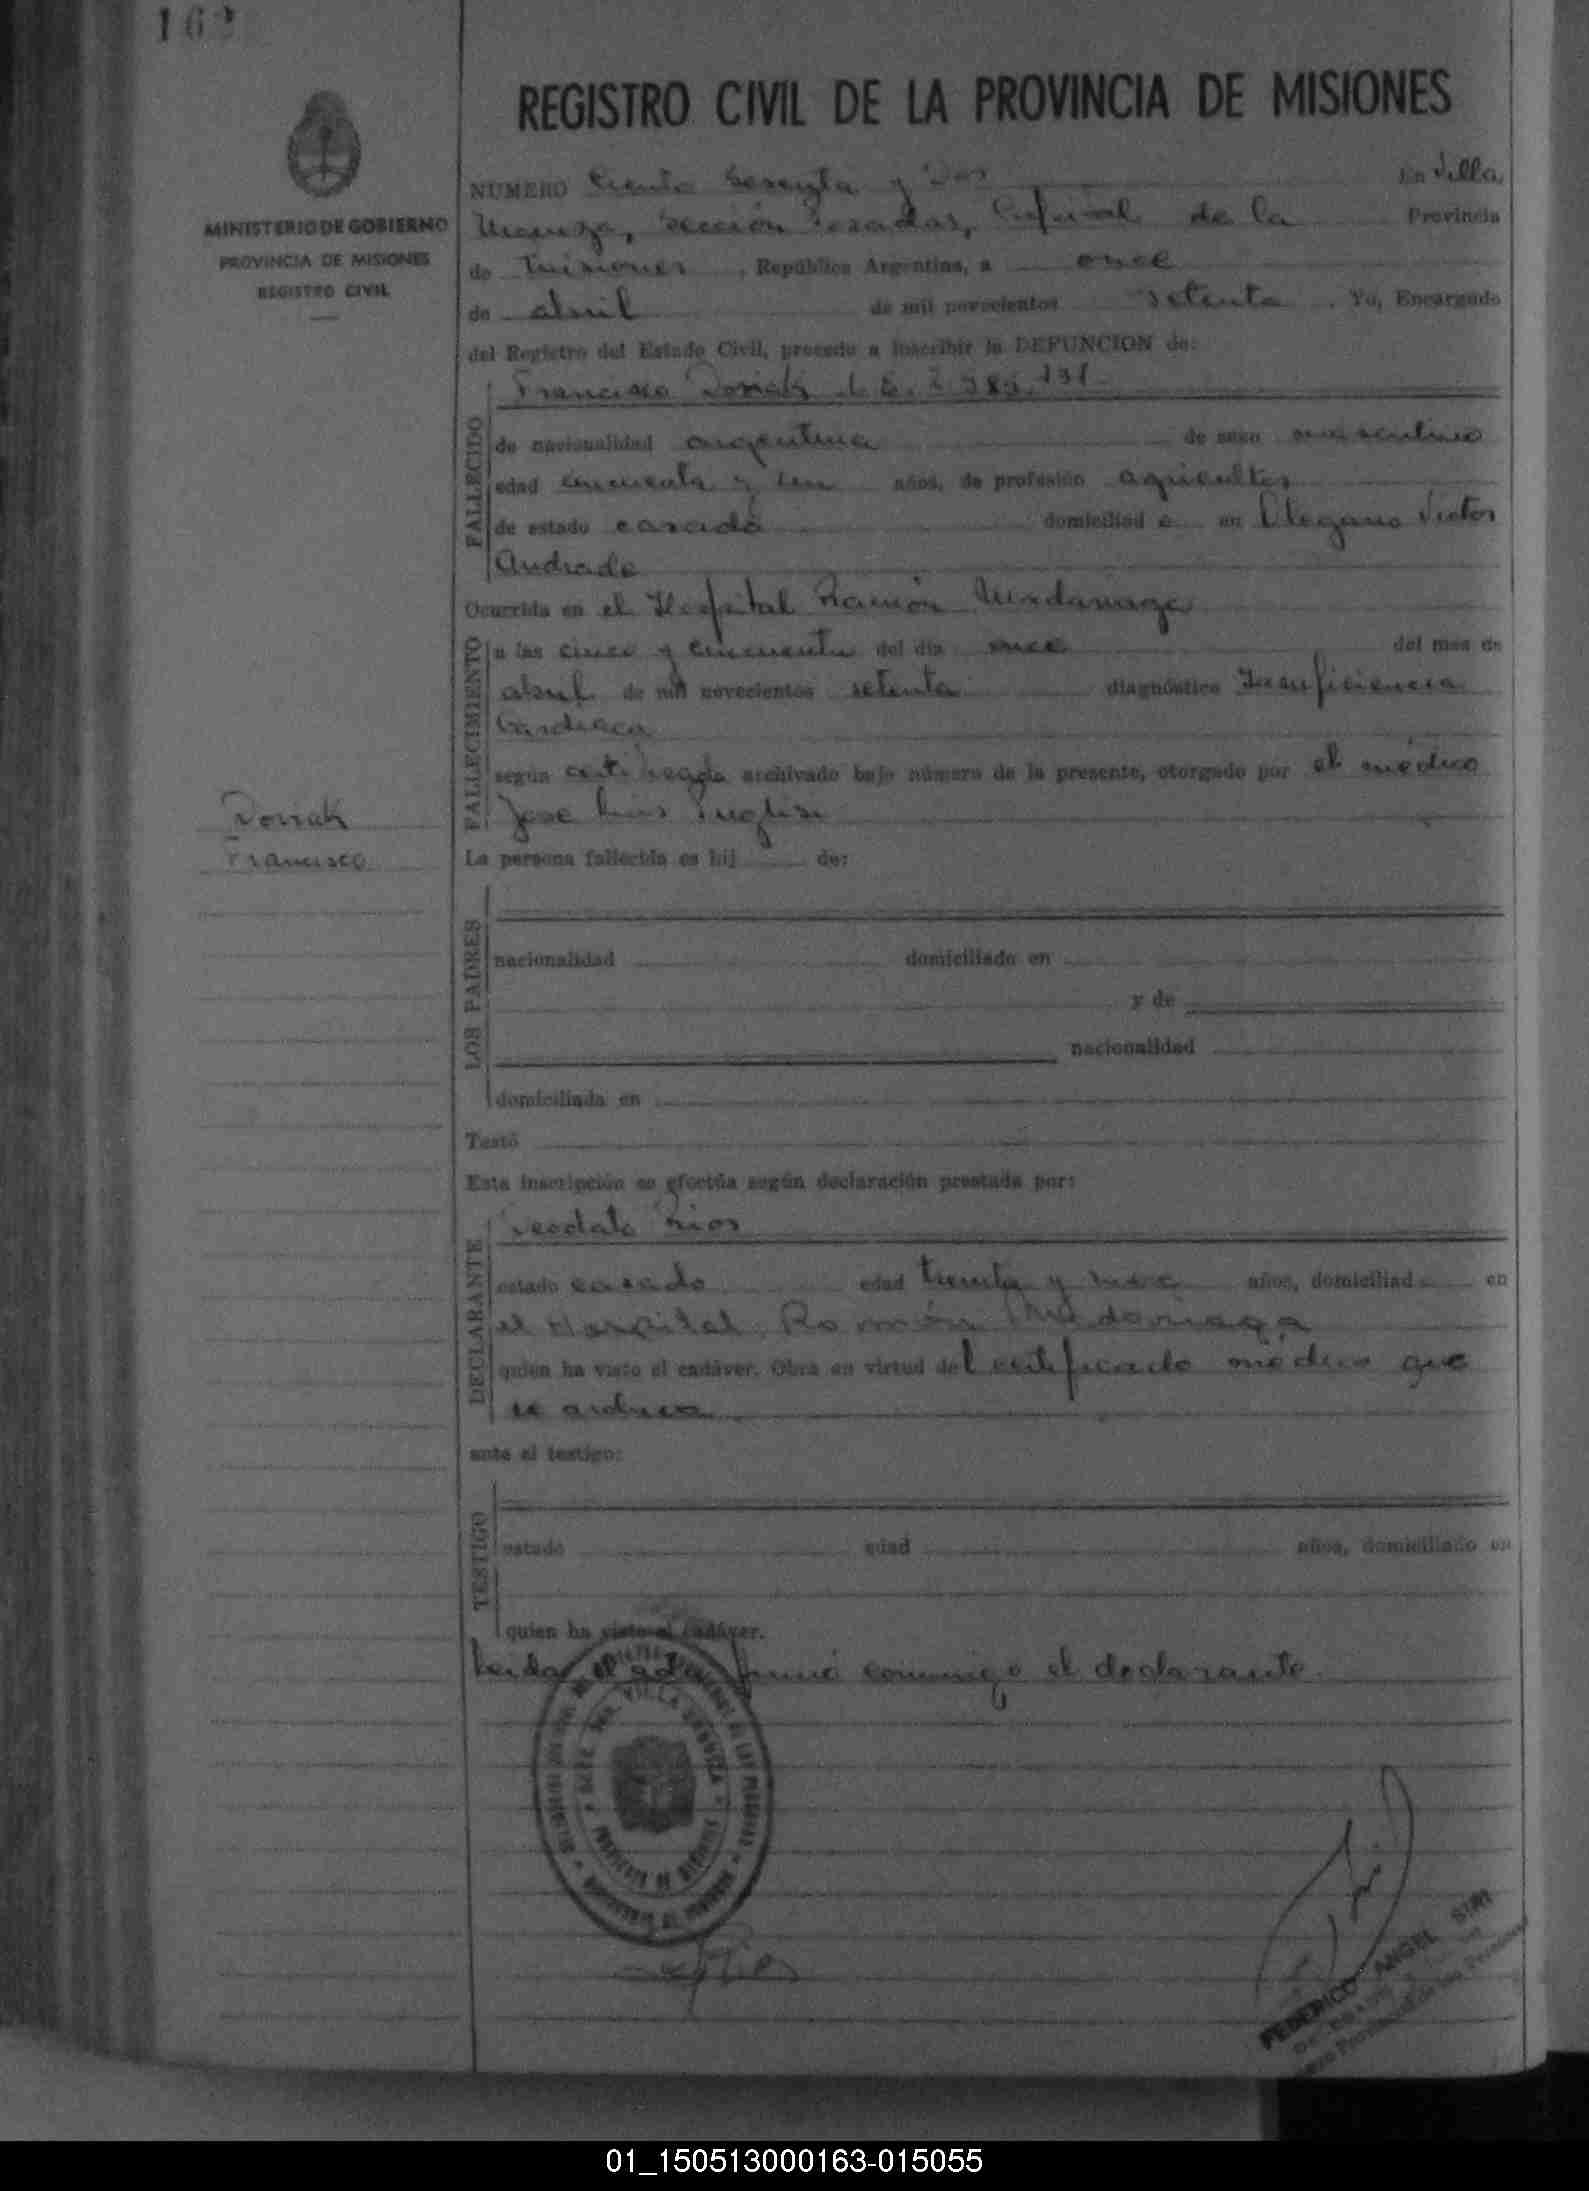 162
MINISTERIO DE GOBIERNO
PROVINCIA DE MISIONES
REGISTRO CIVIL
REGISTRO CIVIL DE LA PROVINCIA DE MISIONES
NUMERO Ciento Sesenta y Dos En Villa
Urquiza, Sección Posadas, Capital de la Provincia
de Misiones, República Argentina, a once
de abril de mil novecientos setenta. Yo, Encargado
del Registro del Estado Civil, procedo a inscribir la DEFUNCION de:
FALLECIDO
Francisco L.E.
de nacionalidad argentina de sexo masculino
edad cincuenta y un años, de profesión agricultor
de estado casado domiciliad o en Olegario Victor
Andrade
Ocurrida en el Hospital Ramón Madariaga
FALLECIMIENTO
a las cinco y cincuenta del día once del mes de
abril de mil novecientos setenta diagnóstico Insuficiencia
Cardiaca
según certificado archivado bajo número de la presente, otorgado por el médico
Jose Luis Puglisi
Francisco
La persona fallecida es hij de:
LOS PADRES
nacionalidad domiciliado en
y de
nacionalidad
domiciliada en
Testó
Esta inscripción se efectúa según declaración prestada por:
DECLARANTE
Deodato Rios
estado casado edad treinta y años, domiciliad o en
el Hospital Ramón Madariaga
quien ha visto el cadáver. Obra en virtud del certificado médico que
se archiva
ante el testigo:
TESTIGO
estado edad años, domiciliado en
quien ha visto el cadáver.
Leida el acta firmó conmigo el declarante.
VILLA URQUIZA
PROVINCIA DE MISIONES
FEDERICO ANGEL SIRI
01_150513000163-015055